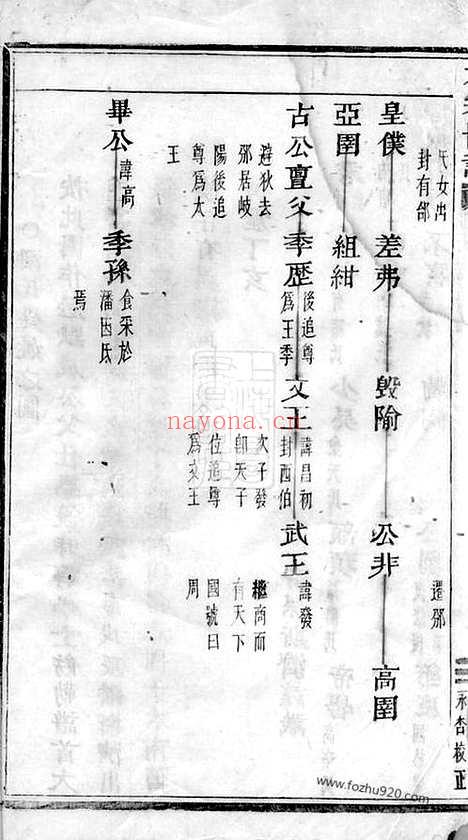 氏女出
封有邰
遷邠
皇僕 差弗 毀隃 公非 高圉
亞圉 組紺
古公亶父 季歷 後追尊 文王 諱昌初 武王 諱發
爲王季 封西伯
避狄去 次子發 繼商而
邠居岐 卽天子 有天下
陽後追 位追尊 國號曰
尊爲太 爲文王 周
王
畢公 諱高 季孫 食采於
潘因氏
焉
永杏校正
nayona.cn
www.fozhu920.com